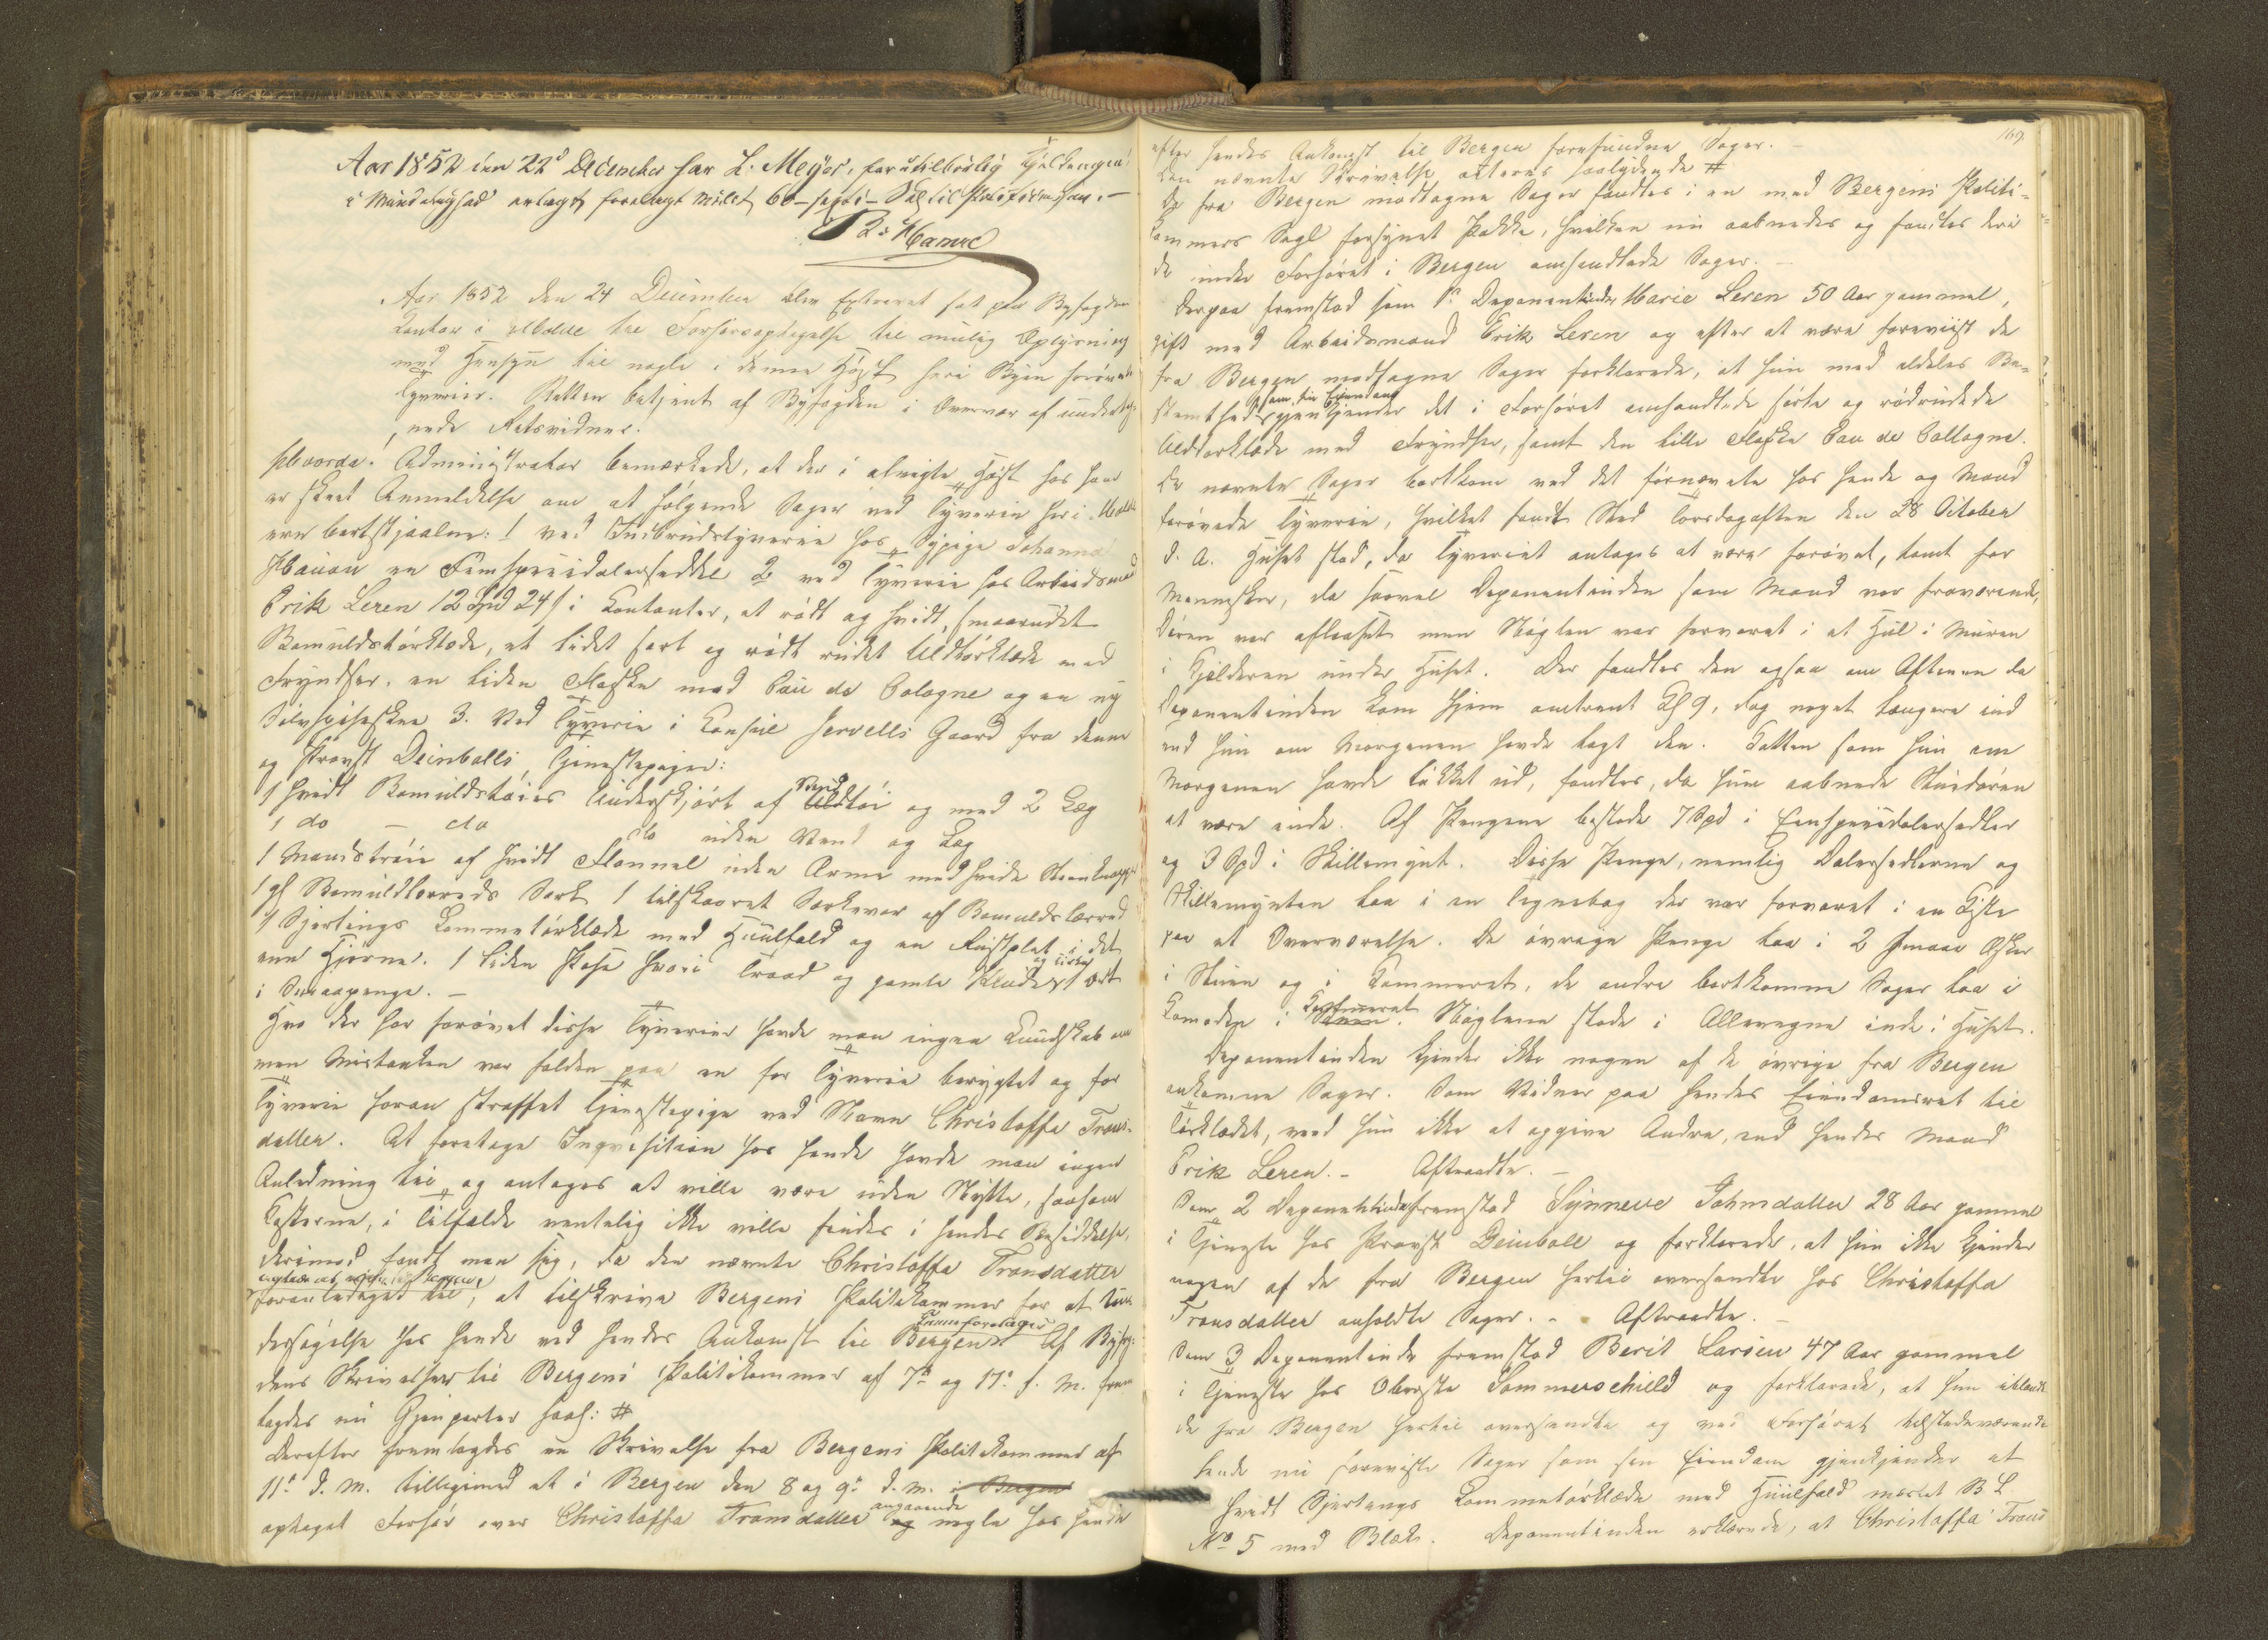 Aar 1852 den 22d December har L. Meyer, for utilbørlig
i vedtaget forelagt Mulct 60 - sexti - Skil til Politikassen. -
Aar 1852 den 24 December blev Extraret sat paa Byfogdens
Kontor i Molde til Forhørsoptagelse til mulig Oplysning
med Hensyn til nogle i denne Høst her i Byen forøvede
Tyverier. Retten betjent af Byfogden i Overvær af underteg-
nede Retsvidner.
Hvorda! Administrator bemærkede, at der i afvigte Høst hos ham
er skeet Anmeldelse om at følgende Sager ved Tyverie her i Molde
ere bortstjaalne: 1 ved Indbrudstyverie hos Sypige Johanna
Hauan en Femspeciedalerseddel 2 ved Tyverie hos Arbeidsmand
Erik Leren 12 Spd 24 s i Contanter, et rødt og hvidt, smaarudet
Bomuldstørklæde, et lidet sort og rødt rudet Uldtørklæde med
Fryndser, en liden Flaske med Eau de Cologne og en ny
Sølvspiseskee 3. Ved Tyverie i Consul Jervells Gaard fra denne
og Provst Deinbolls Tjenestepiger:
1 hvidt Bomuldstøies Underskjørt af Uldtøi og med 2 Læg
1 do - do do uden Vend og Læg
1 Mandstrøie af hvidt Flonnel uden Arme med hvide Steenknapper
1 gl Bomuldlerreds Særk 1 tilskaaret Særkevær af Bomuldslærred
1 Sjertings Lommetørklæde med Huulfald og en Rustplet i det
ene Hjørne. 1 liden Pose hvori Traad og gamle Klude og circa 1 ort
i Smaapenge. -
Hvo der har forøvet disse Tyverier havde man ingen Kundskab om
men Mistanken var falden paa en for Tyverie berygtet og for
Tyverie foran straffet Tjenestepige ved Navn Christoffa Trons-
datter. At foretage Inqvisition hos hende havde man ingen
Anledning til og antoges at ville være uden Nytte, saasom
Kosterne, i Tilfælde ventelig ikke ville findes i hendes Besiddelse,
derimod fandt man sig, da den nævnte Christoffa Tronsdatter
foranlediget til, at tilskrive Bergens Politikammer for at Un-
dersøgelse hos hende ved hendes Ankomst til Bergen kunne foretages. Af Byfog-
dens Skrivelser til Bergens Politikammer af 7de og 17de f. M. frem-
lagdes nu Gjenparter saal: #
Derefter fremlagdes en Skrivelse fra Bergens Politikammer af
11te d. M. tilligemed et i Bergen den 8 og 9de d. M. i Bergen
optaget Forhør over Christoffa Tronsdatter angaaende og nogle hos hende
169
efter hendes Ankomst til Bergen forefundne Sager. -
Den nævnte Skrivelse acteres saalydende #
De fra Bergen modtagne Sager fandtes i en med Bergens Politi-
kammers Segl forsynet Pakke, hvilken nu aabnedes og fandtes deri
de under Forhøret i Bergen omhandlede Sager. -
Derpaa fremstod som 1ste Deponentinde Marie Leren 50 Aar gammel,
gift med Arbeidsmand Erik Leren og efter at være foreviist de
fra Bergen modtagne Sager forklarede, at hun med aldeles Be-
stemthed som sin Eiendom gjenkjender det i Forhøret omhandlede sorte og rødrudede
Uldtørklæde med Fryndser, samt den lille Flaske Eau de Collogne.
De nævnte Sager bortkom ved det førnævnte hos hende og Mand
forøvede Tyverie, hvilket fandt Sted Torsdagaften den 28 October
d. A. Huset stod, da Tyveriet antages at være forøvet, tomt for
Mennesker, da saavel Deponentinden som Mand var fraværende,
Døren var aflaaset men Nøglen var forvaret i et Hul i Muren
i Kjelderen under Huset. Der fandtes den ogsaa om Aftenen da
Deponentinden kom hjem omtrent Kl 9, dog noget længere ind
end hun om Morgenen havde lagt den. Katten som hun om
Morgenen havde lukket ud, fandtes, da hun aabnede Stuedøren
at være inde. Af Pengene bestode 7 Spd i Eenspeciedalersedler
og 3 Spd i Skillemynt. Disse Penge, nemlig Dalersedlerne og
Skillemynten laa i en Tegnebog der var forvaret i en Kiste
paa et Overværelse. De øvrige Penge laa i 2 smaae Æsker
i Stuen og i Kammeret, de andre bortkomne Sager laa i
Komoden i Kammeret. Nøglene stode i Allevegne inde i Huset.
Deponentinden kjender ikke nogen af de øvrige fra Bergen
ankomne Sager. Som Vidner paa hendes Eiendomsret til
Tørklædet, veed hun ikke at opgive Andre, end hendes Mand
Erik Leren. - Aftraadte. -
Som 2 Deponentinde fremstod Synneve Johnsdatter 28 Aar gammel
i Tjeneste hos Provst Deinboll og forklarede, at hun ikke kjender
nogen af de fra Bergen hertil oversendte hos Christoffa
Tronsdatter anholdte Sager. - Aftraadte. -
Som 3 Deponentinde fremstod Berit Larsen 47 Aar gammel
i Tjeneste hos Oberste Sommerschield og forklarede, at hun iblandt
de fra Bergen hertil oversendte og ved Forhøret tilstedeværende
hende nu foreviste Sager som sin Eiendom gjenkjender et
hvidt Sjertings Lommetørklæde med Huulfald mærket B L
No 5 med Blæk. Deponentinden erklærede, at Christoffa Trons